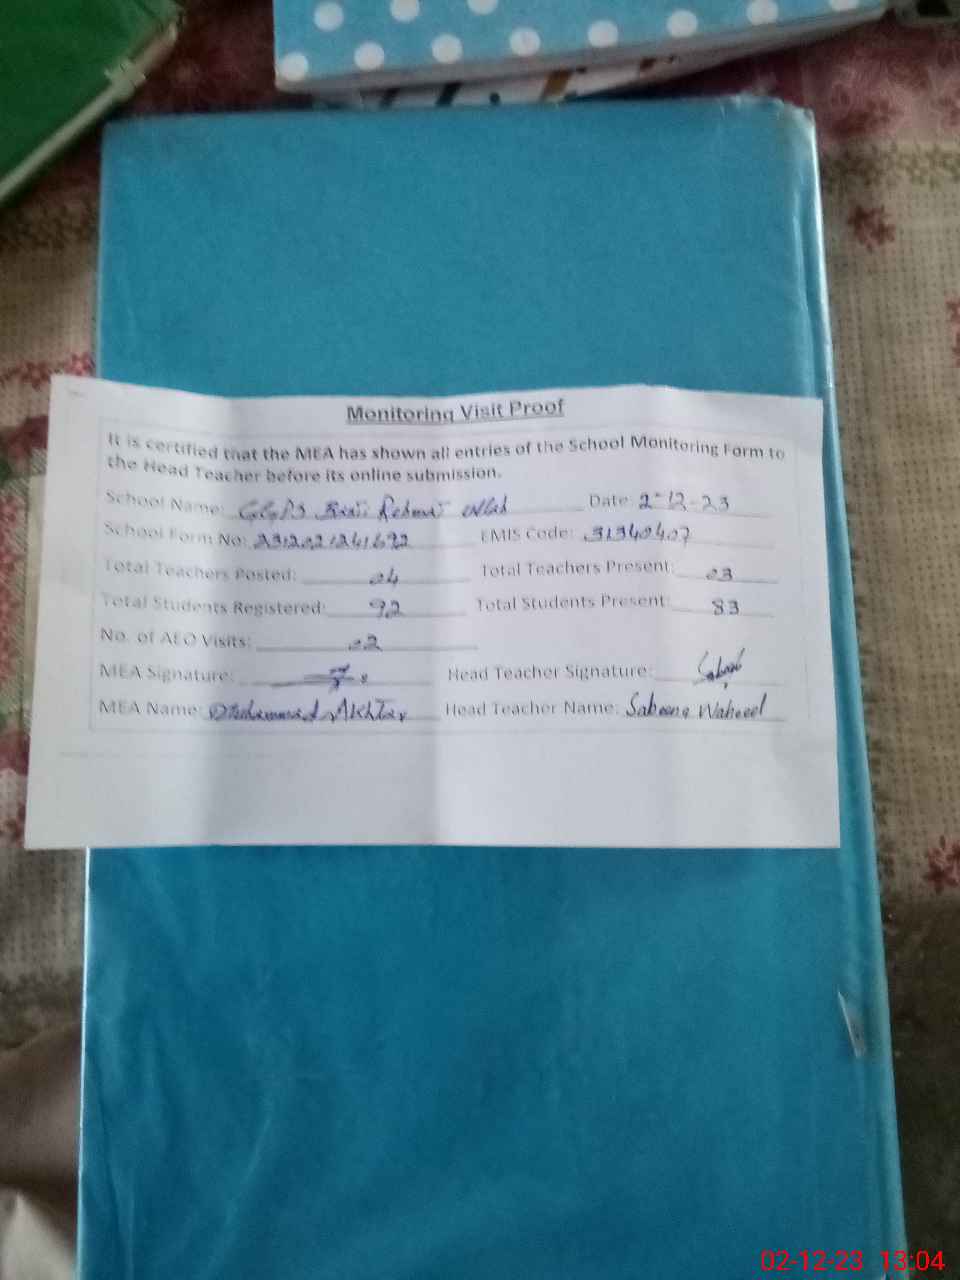 Monitoring Visit Proof
It is certified that the MEA has shown all entries of the School Monitoring Form to
the Head Teacher before its online submission.
School Name: GGPS Rehmat ullah Date: 2-12-23
School Form No: EMIS Code: 31340407
Total Teachers Posted: 04 Total Teachers Present: 03
Total Students Registered: 92 Total Students Present: 83
No. of AEO Visits: 02
MEA Signature: Head Teacher Signature:
MEA Name: Muhammad Akhtar Head Teacher Name: Sabeena Waheed
02-12-23 13:04